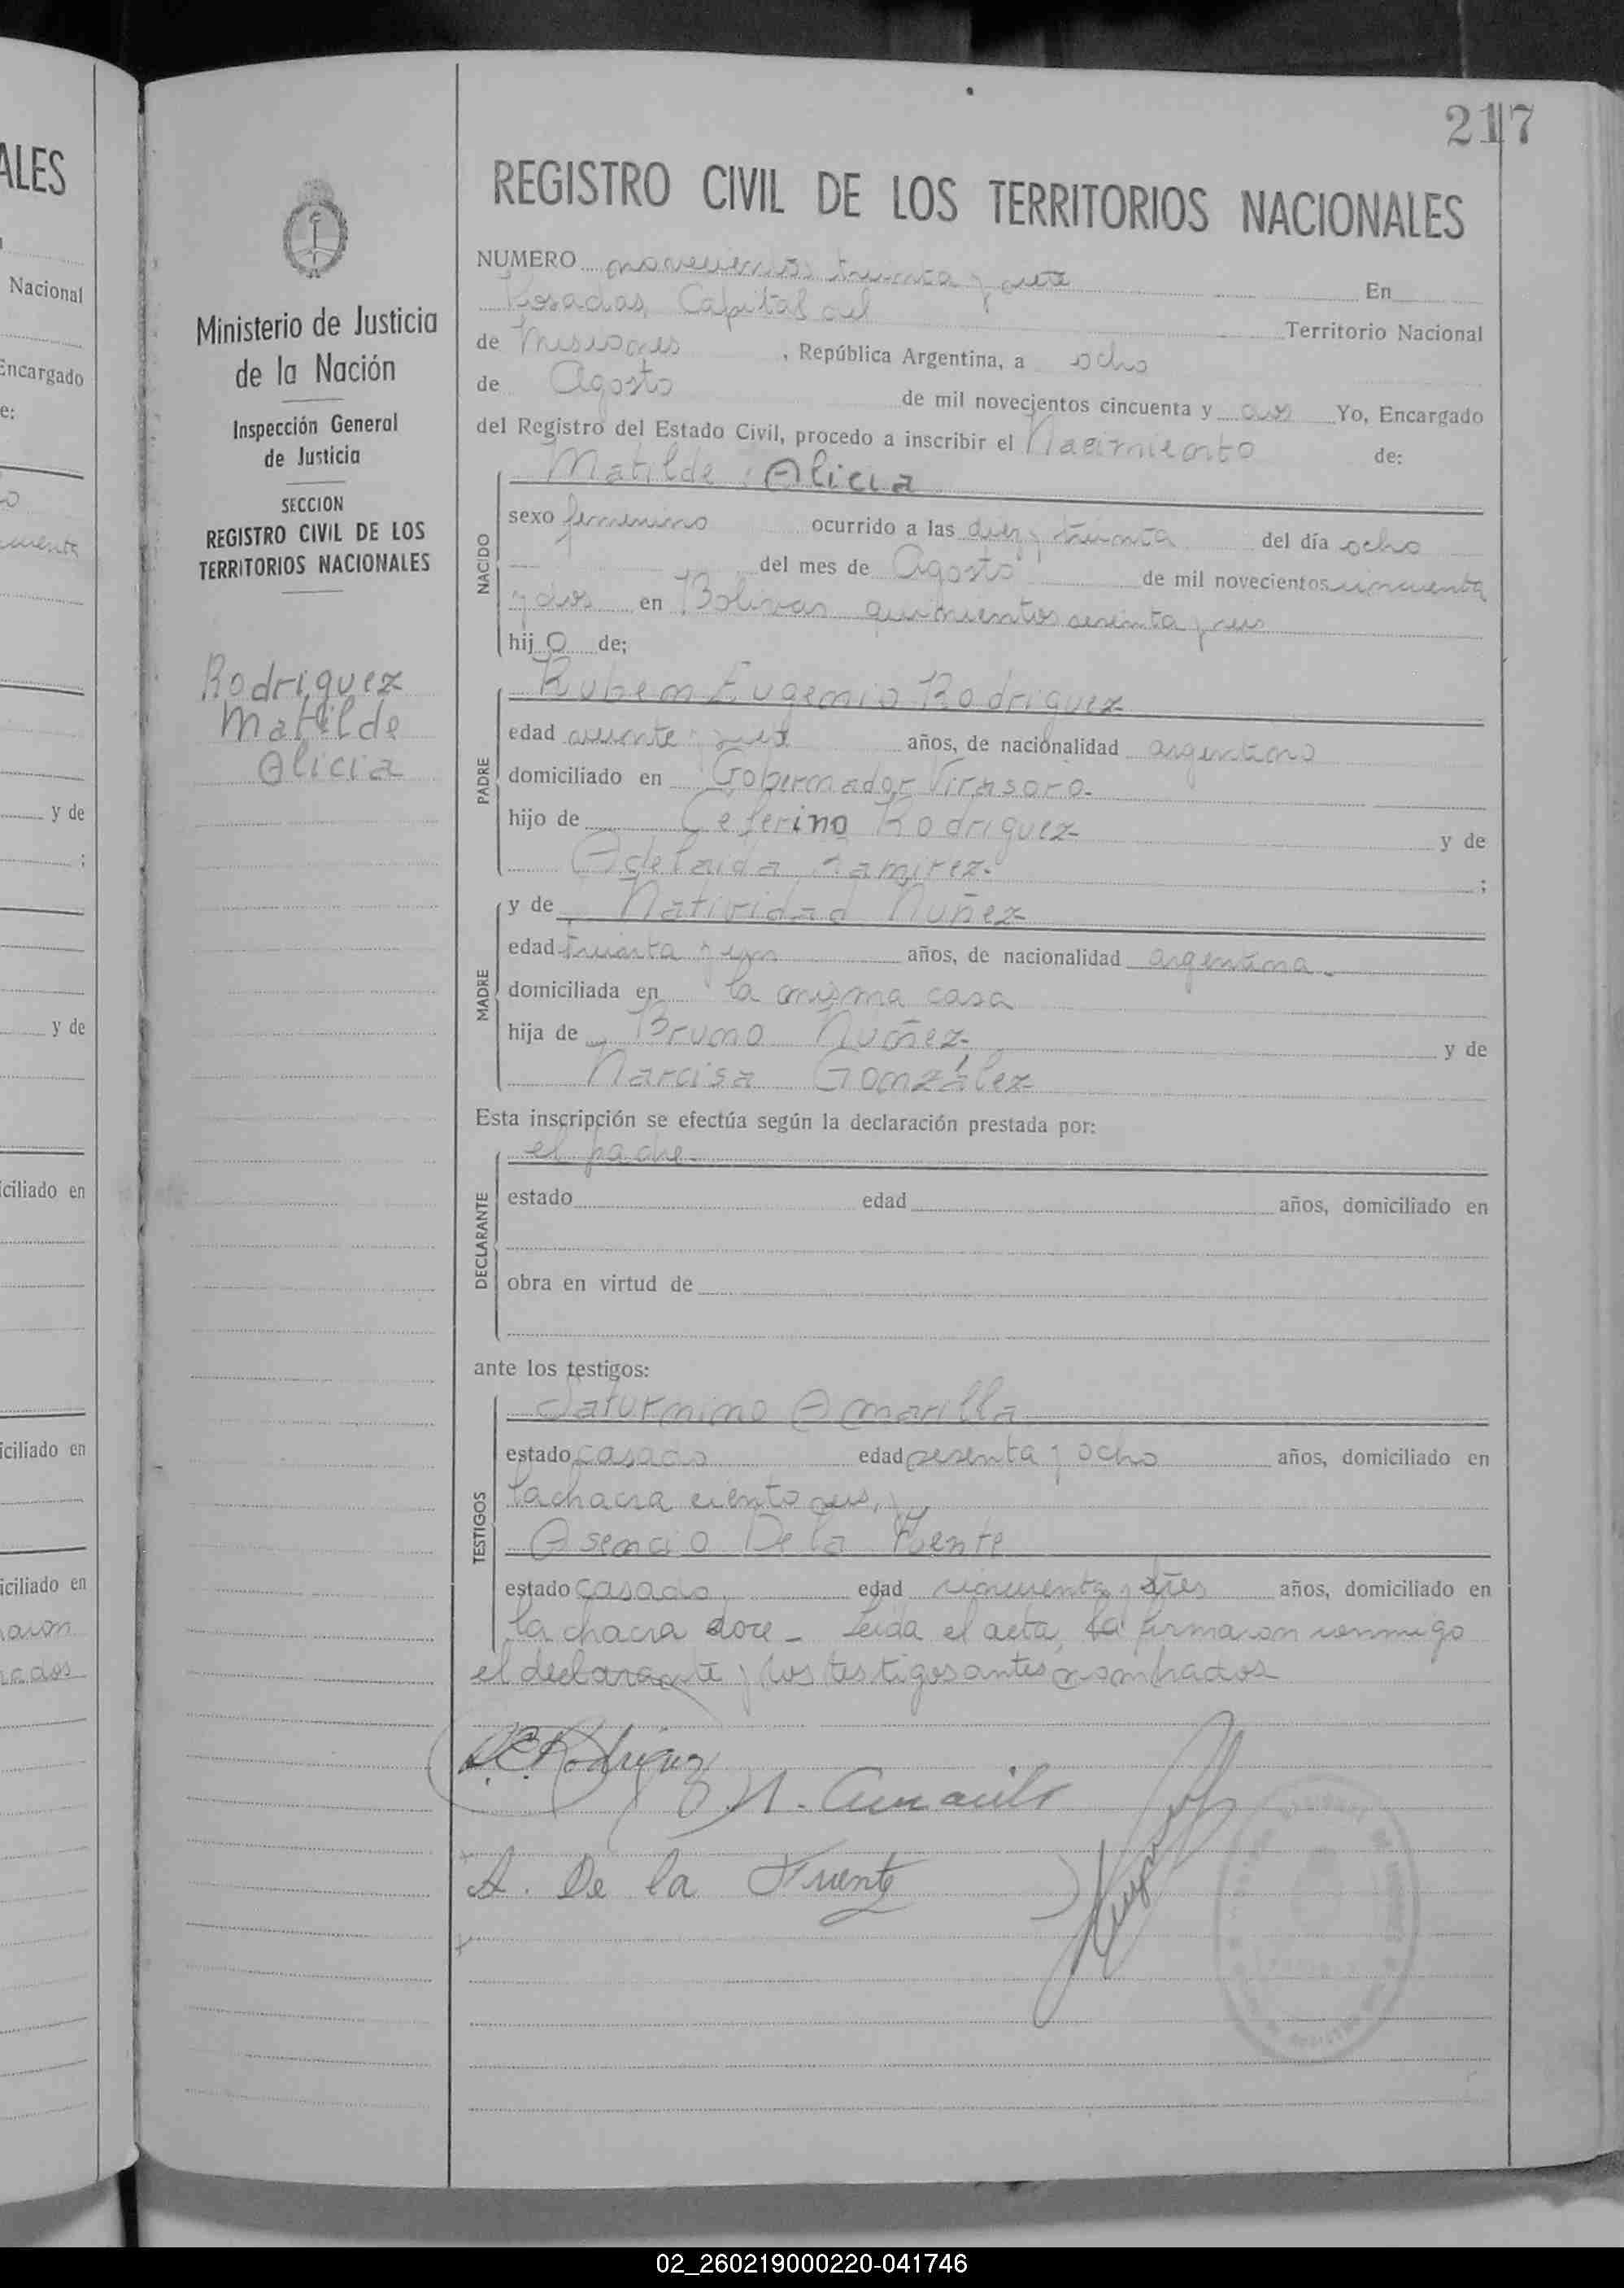 217
ALES
Nacional
Encargado
e:
y de
;
y de
iciliado en
iciliado en
iciliado en
Ministerio de Justicia
de la Nación
Inspección General
de Justicia
SECCION
REGISTRO CIVIL DE LOS
TERRITORIOS NACIONALES
Rodriguez
Matilde
Alicia
REGISTRO CIVIL DE LOS TERRITORIOS NACIONALES
NUMERO novecientos treinta y siete En
Posadas, Capital del Territorio Nacional
de Misiones, República Argentina, a ocho
de Agosto de mil novecientos cincuenta y dos Yo, Encargado
del Registro del Estado Civil, procedo a inscribir el Nacimiento de:
NACIDO
Matilde Alicia
sexo femenino ocurrido a las diez y treinta del día ocho
del mes de Agosto de mil novecientos cincuenta
y dos en Bolivar quinientos sesenta y seis
hij o de;
PADRE
Ruben Eugenio Rodriguez
edad años, de nacionalidad argentino
domiciliado en Gobernador Virasoro.
hijo de Ceferino Rodriguez y de
Adelaida Ramirez. ;
MADRE
y de Natividad Nuñez
edad treinta y un años, de nacionalidad argentina.
domiciliada en la misma casa
hija de Bruno Nuñez y de
Narcisa González
Esta inscripción se efectúa según la declaración prestada por:
DECLARANTE
el padre.
estado edad años, domiciliado en
obra en virtud de
ante los testigos:
TESTIGOS
Saturnino Amarilla
estado casado edad sesenta y ocho años, domiciliado en
la chacra ciento seis, y
Asencio De la Fuente
estado casado edad cincuenta y tres años, domiciliado en
la chacra doce - Leida el acta, la firmaron conmigo
el declarante y los testigos antes nombrados
R.E. Rodriguez
S. Amarilla
A. De la Fuente
02_260219000220-041746